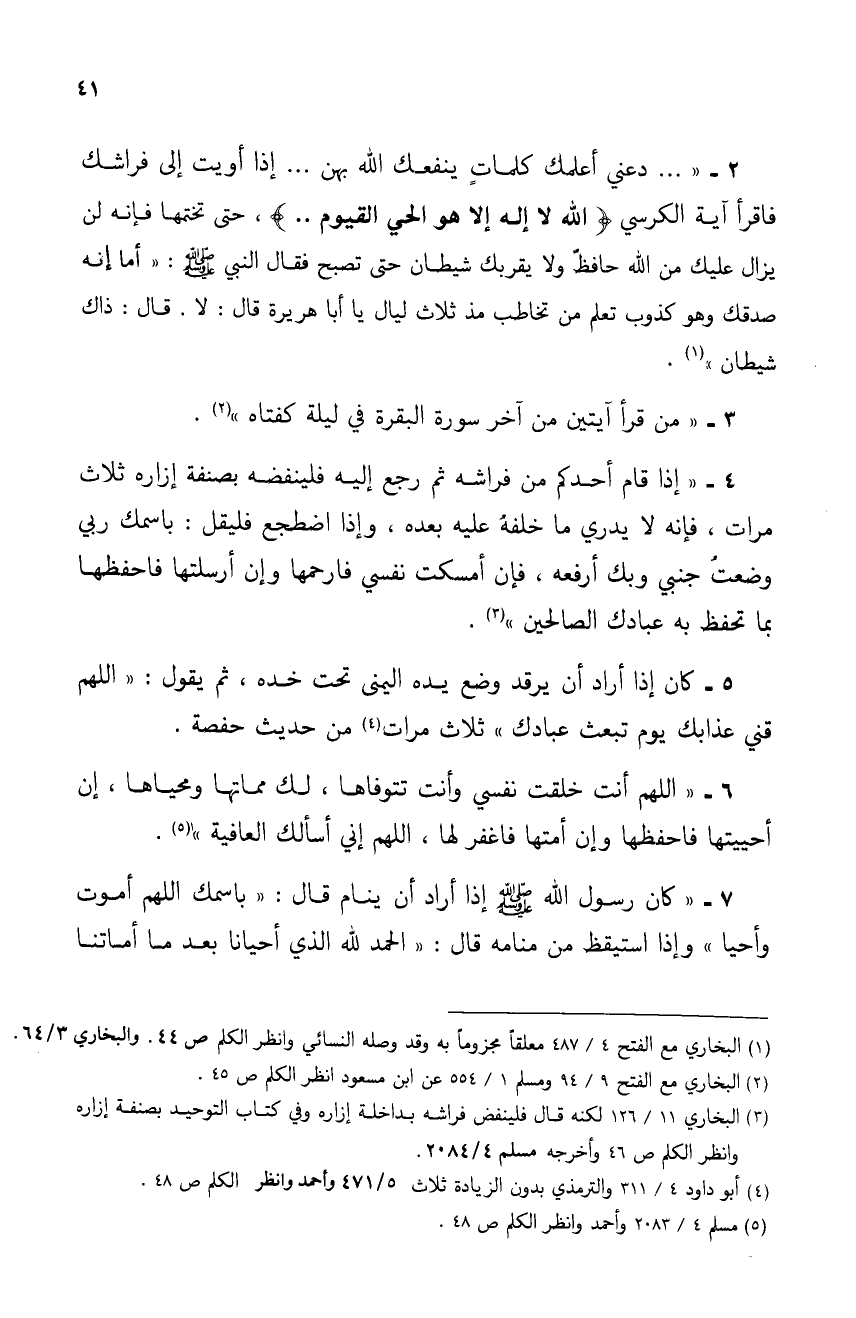 ٤١
٢ ـ « ... دعني أعلمك كلماتٍ ينفعك الله بهن ... إذا أويت إلى فراشك
فاقرأ آية الكرسي ﴿ الله لا إله إلا هو الحي القيوم .. ﴾ ، حتى تختمها فإنه لن
يزال عليك من الله حافظٌ ولا يقربك شيطان حتى تصبح فقال النبي ﷺ : « أما إنه
صدقك وهو كذوب تعلم من تخاطب مذ ثلاث ليال يا أبا هريرة قال : لا . قال : ذاك
شيطان »(١) .
٣ ـ « من قرأ آيتين من آخر سورة البقرة في ليلة كفتاه »(٢) .
٤ ـ « إذا قام أحدكم من فراشه ثم رجع إليه فلينفضه بصنفة إزاره ثلاث
مرات ، فإنه لا يدري ما خلفهُ عليه بعده ، وإذا اضطجع فليقل : باسمك ربي
وضعتُ جنبي وبك أرفعه ، فإن أمسكت نفسي فارحمها وإن أرسلتها فاحفظها
بما تحفظ به عبادك الصالحين »(٣) .
٥ ـ كان إذا أراد أن يرقد وضع يده اليمنى تحت خده ، ثم يقول : « اللهم
قني عذابك يوم تبعث عبادك » ثلاث مرات(٤) من حديث حفصة .
٦ ـ « اللهم أنت خلقت نفسي وأنت تتوفاها ، لك مماتها ومحياها ، إن
أحييتها فاحفظها وإن أمتها فاغفر لها ، اللهم إني أسألك العافية »(٥) .
٧ ـ « كان رسول الله ﷺ إذا أراد أن ينام قال : « باسمك اللهم أموت
وأحيا » وإذا استيقظ من منامه قال : « الحمد لله الذي أحيانا بعد ما أماتنا
(١) البخاري مع الفتح ٤ / ٤٨٧ معلقاً مجزوماً به وقد وصله النسائي وانظر الكلم ص ٤٤ . والبخاري ٦٤/٣ .
(٢) البخاري مع الفتح ٩ / ٩٤ ومسلم ١ / ٥٥٤ عن ابن مسعود انظر الكلم ص ٤٥ .
(٣) البخاري ١١ / ١٢٦ لكنه قال فلينفض فراشه بداخلة إزاره وفي كتاب التوحيد بصنفة إزاره
وانظر الكلم ص ٤٦ وأخرجه مسلم ٢٠٨٤/٤ .
(٤) أبو داود ٤ / ٣١١ والترمذي بدون الزيادة ثلاث ٤٧١/٥ وأحمد وانظر الكلم ص ٤٨ .
(٥) مسلم ٤ / ٢٠٨٣ وأحمد وانظر الكلم ص ٤٨ .